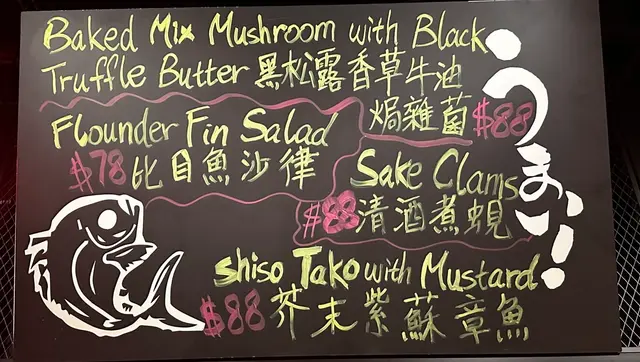 Baked Mix Mushroom with Black
Truffle Butter 黑松露香草牛油
焗雜菌 $88
Flounder Fin Salad
$78 比目魚沙律
Sake Clams
$88 清酒煮蜆
Shiso Tako with Mustard
$88 芥末紫蘇章魚
うまい!